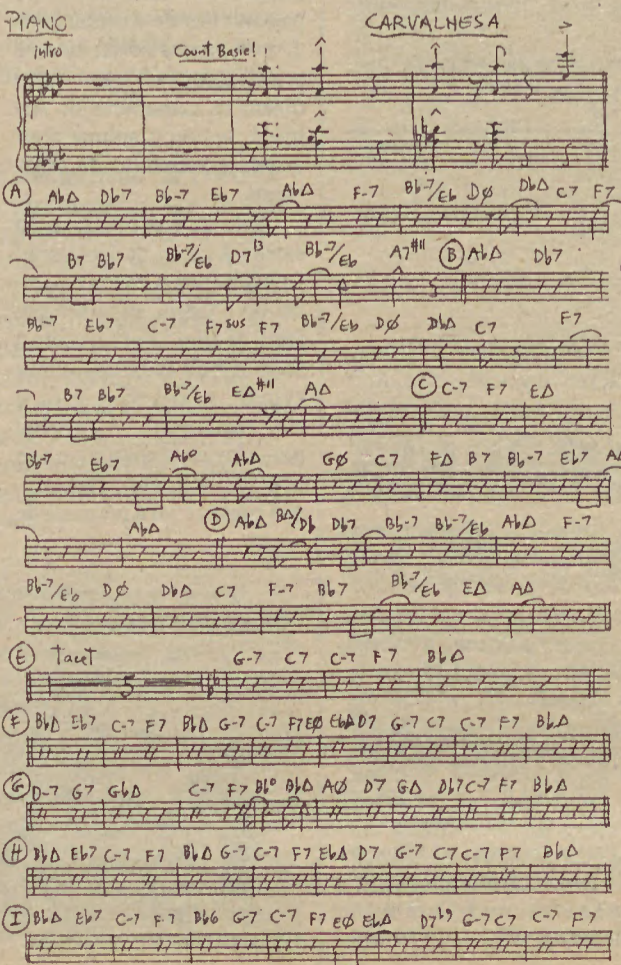 PIANO CARVALHESA
intro Count Basie!
A AbΔ Db7 Bb-7 Eb7 AbΔ F-7 Bb-7/Eb DØ DbΔ C7 F7
B7 Bb7 Bb-7/Eb D7¹³ Bb-7/Eb A7#11 B AbΔ Db7
Bb-7 Eb7 C-7 F7sus F7 Bb-7/Eb DØ DbΔ C7 F7
B7 Bb7 Bb-7/Eb EΔ#11 AΔ C C-7 F7 EΔ
Bb-7 Eb7 Abo AbΔ GØ C7 FΔ B7 Bb-7 Eb7 AΔ
AbΔ D AbΔ BΔ/Db Db7 Bb-7 Bb-7/Eb AbΔ F-7
Bb-7/Eb DØ DbΔ C7 F-7 Bb7 Bb-7/Eb EΔ AΔ
E Tacet G-7 C7 C-7 F7 BbΔ
5
F BbΔ Eb7 C-7 F7 BbΔ G-7 C-7 F7 EØ EbΔ D7 G-7 C7 C-7 F7 BbΔ
G D-7 G7 GbΔ C-7 F7 Bbo BbΔ AØ D7 GΔ Db7 C-7 F7 BbΔ
H BbΔ Eb7 C-7 F7 BbΔ G-7 C-7 F7 EbΔ D7 G-7 C7 C-7 F7 BbΔ
I BbΔ Eb7 C-7 F-7 Bb6 G-7 C-7 F7 EØ EbΔ D7b9 G-7 C7 C-7 F7